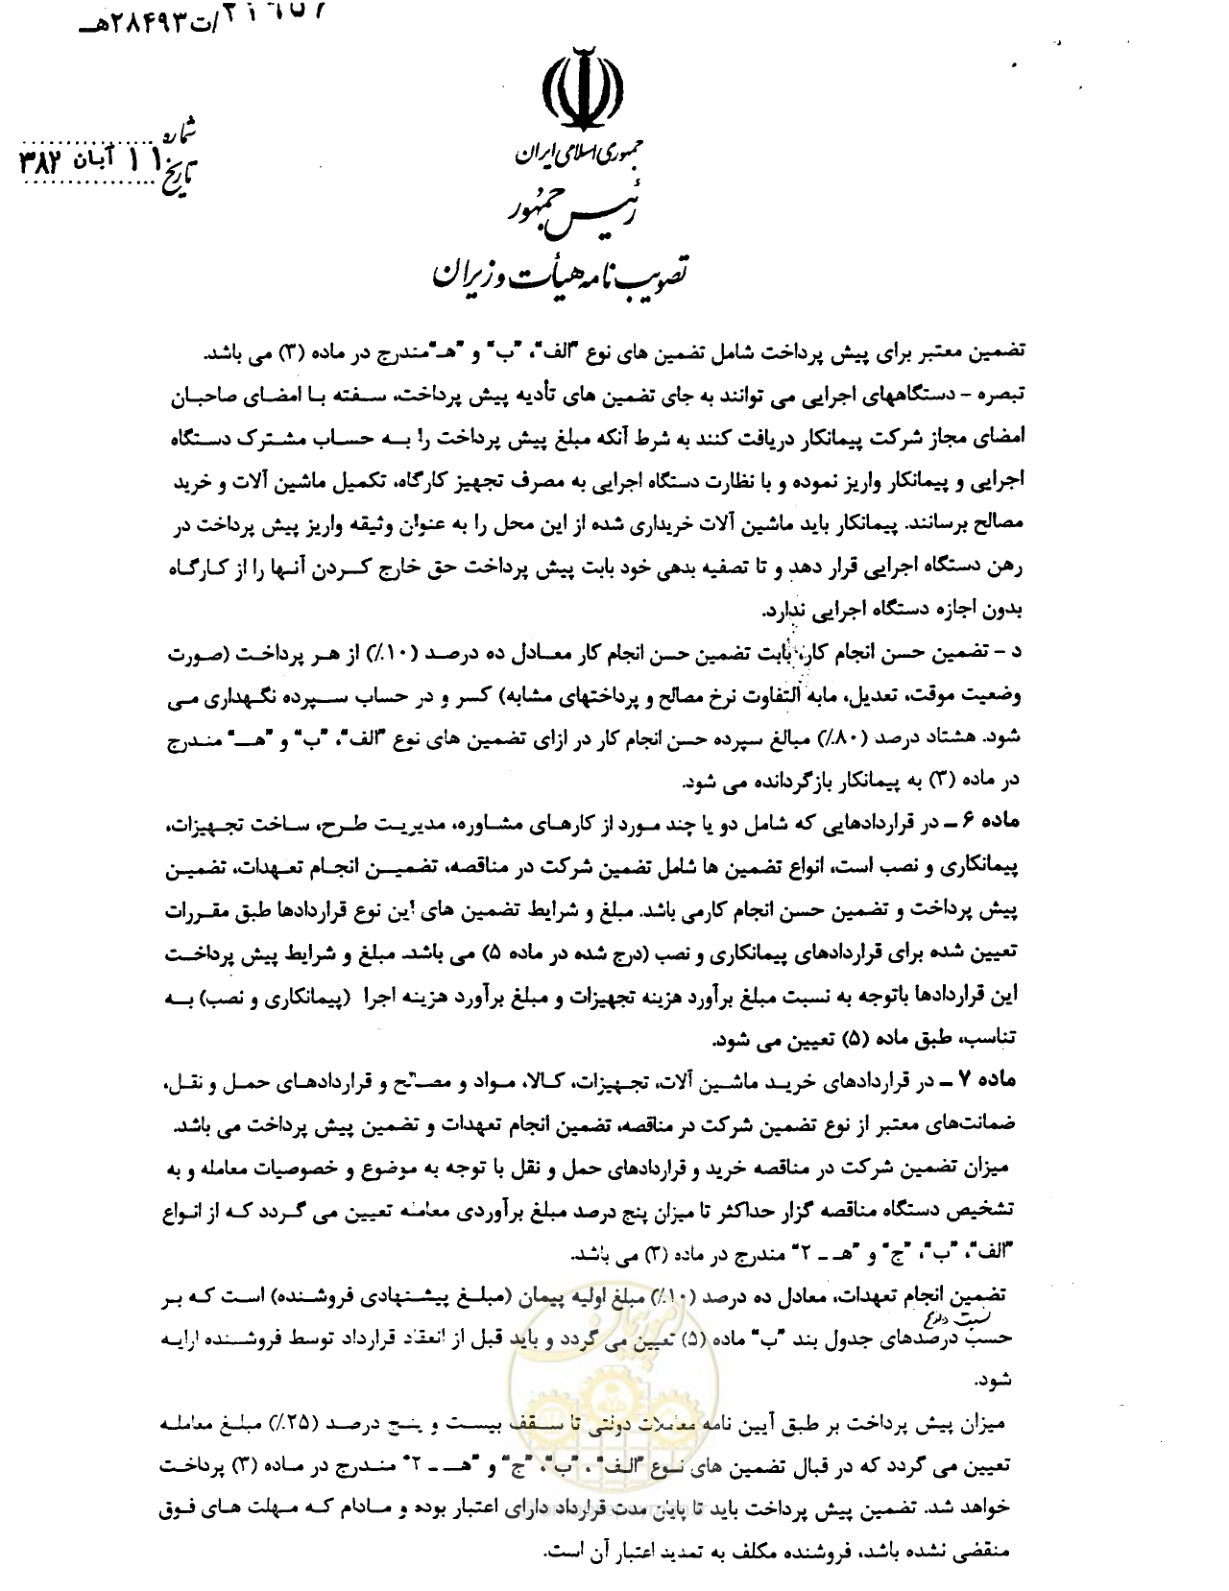 /ت۲۸۴۹۳هـ
جمهوری اسلامی ایران
رئیس جمهور
تصویب نامه هیأت وزیران
شماره
تاریخ
۱۱ آبان ۳۸۲
تضمین معتبر برای پیش پرداخت شامل تضمین های نوع "الف"، "ب" و "هـ"مندرج در ماده (۳) می باشد.
تبصره - دستگاههای اجرایی می توانند به جای تضمین های تأدیه پیش پرداخت، سفته با امضای صاحبان
امضای مجاز شرکت پیمانکار دریافت کنند به شرط آنکه مبلغ پیش پرداخت را به حساب مشترک دستگاه
اجرایی و پیمانکار واریز نموده و با نظارت دستگاه اجرایی به مصرف تجهیز کارگاه، تکمیل ماشین آلات و خرید
مصالح برسانند. پیمانکار باید ماشین آلات خریداری شده از این محل را به عنوان وثیقه واریز پیش پرداخت در
رهن دستگاه اجرایی قرار دهد و تا تصفیه بدهی خود بابت پیش پرداخت حق خارج کردن آنها را از کارگاه
بدون اجازه دستگاه اجرایی ندارد.
د - تضمین حسن انجام کار، بابت تضمین حسن انجام کار معادل ده درصد (۱۰٪) از هر پرداخت (صورت
وضعیت موقت، تعدیل، مابه التفاوت نرخ مصالح و پرداختهای مشابه) کسر و در حساب سپرده نگهداری می
شود. هشتاد درصد (۸۰٪) مبالغ سپرده حسن انجام کار در ازای تضمین های نوع "الف"، "ب" و "هـ" مندرج
در ماده (۳) به پیمانکار بازگردانده می شود.
ماده ۶ - در قراردادهایی که شامل دو یا چند مورد از کارهای مشاوره، مدیریت طرح، ساخت تجهیزات،
پیمانکاری و نصب است، انواع تضمین ها شامل تضمین شرکت در مناقصه، تضمین انجام تعهدات، تضمین
پیش پرداخت و تضمین حسن انجام کارمی باشد. مبلغ و شرایط تضمین های این نوع قراردادها طبق مقررات
تعیین شده برای قراردادهای پیمانکاری و نصب (درج شده در ماده ۵) می باشد. مبلغ و شرایط پیش پرداخت
این قراردادها باتوجه به نسبت مبلغ برآورد هزینه تجهیزات و مبلغ برآورد هزینه اجرا (پیمانکاری و نصب) به
تناسب، طبق ماده (۵) تعیین می شود.
ماده ۷ - در قراردادهای خرید ماشین آلات، تجهیزات، کالا، مواد و مصالح و قراردادهای حمل و نقل،
ضمانت‌های معتبر از نوع تضمین شرکت در مناقصه، تضمین انجام تعهدات و تضمین پیش پرداخت می باشد.
میزان تضمین شرکت در مناقصه خرید و قراردادهای حمل و نقل با توجه به موضوع و خصوصیات معامله و به
تشخیص دستگاه مناقصه گزار حداکثر تا میزان پنج درصد مبلغ برآوردی معامله تعیین می گردد که از انواع
"الف"، "ب"، "ج" و "هـ - ۲" مندرج در ماده (۳) می باشد.
تضمین انجام تعهدات، معادل ده درصد (۱۰٪) مبلغ اولیه پیمان (مبلغ پیشنهادی فروشنده) است که بر
حسب درصدهای جدول بند "ب" ماده (۵) تعیین می گردد و باید قبل از انعقاد قرارداد توسط فروشنده ارایه
شود.
میزان پیش پرداخت بر طبق آیین نامه معاملات دولتی تا سقف بیست و پنج درصد (۲۵٪) مبلغ معامله
تعیین می گردد که در قبال تضمین های نوع "الف"، "ب"، "ج" و "هـ - ۲" مندرج در ماده (۳) پرداخت
خواهد شد. تضمین پیش پرداخت باید تا پایان مدت قرارداد دارای اعتبار بوده و مادام که مهلت های فوق
منقضی نشده باشد، فروشنده مکلف به تمدید اعتبار آن است.
امور پیمان